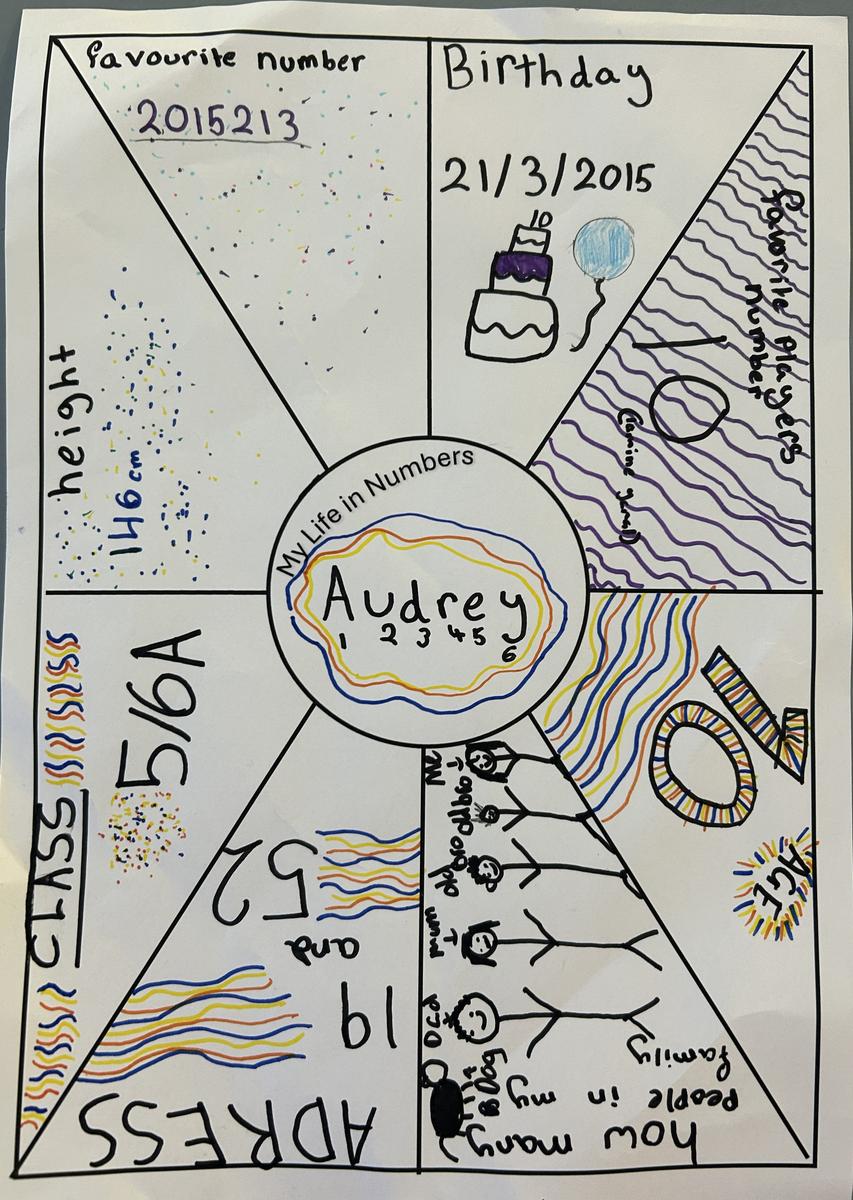 favourite number
2015213
Birthday
21/3/2015
10
favorite players
number
10
(lamine yamal)
10
AGE
how many
people in my
family
Dog
Dad
mum
old bro
old bro
Me
ADRESS
19
and
52
CLASS
5/6A
height
146 cm
My Life in Numbers
Audrey
1 2 3 4 5 6